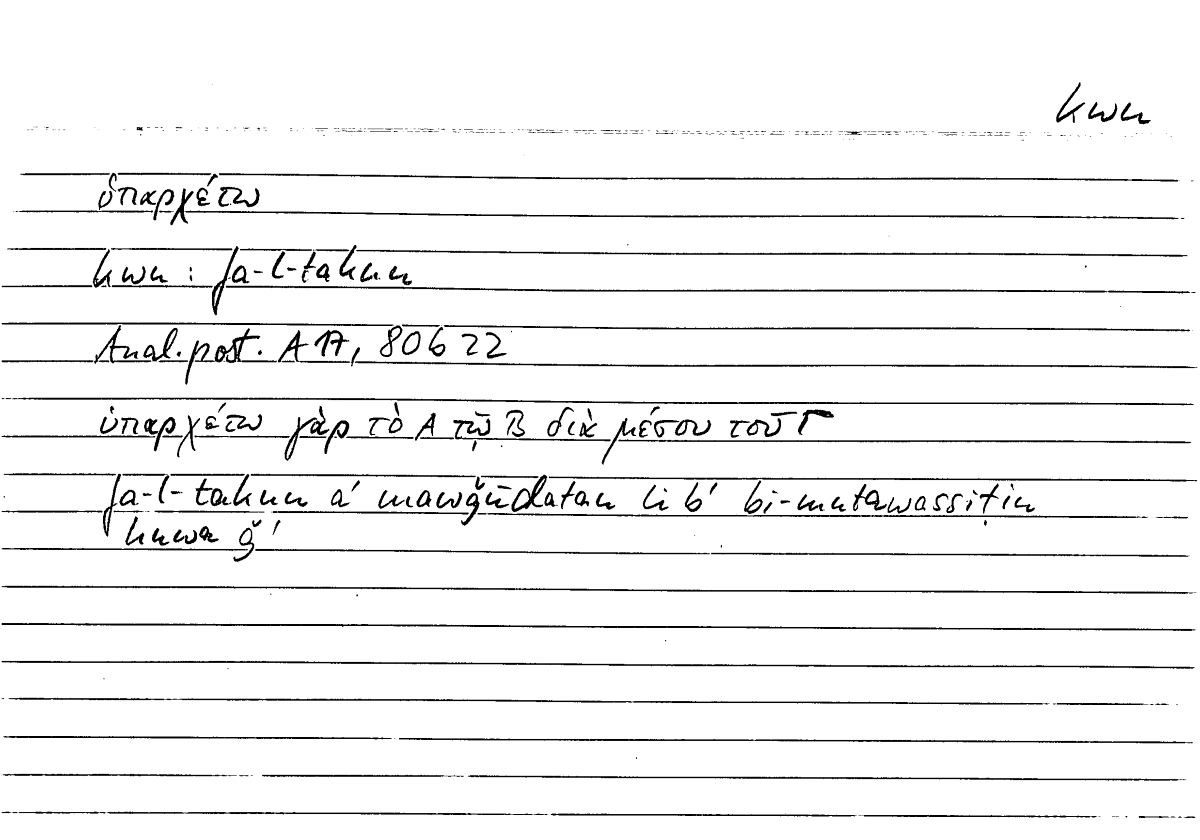 kwn
ὑπαρχέτω
kwn : fa-l-takun
Anal. post. A 17, 80b 22
ὑπαρχέτω γὰρ τὸ A τῷ B διὰ μέσου τοῦ Γ
fa-l-takun a' mawǧūdatan li b' bi-mutawassiṭin
huwa ǧ'